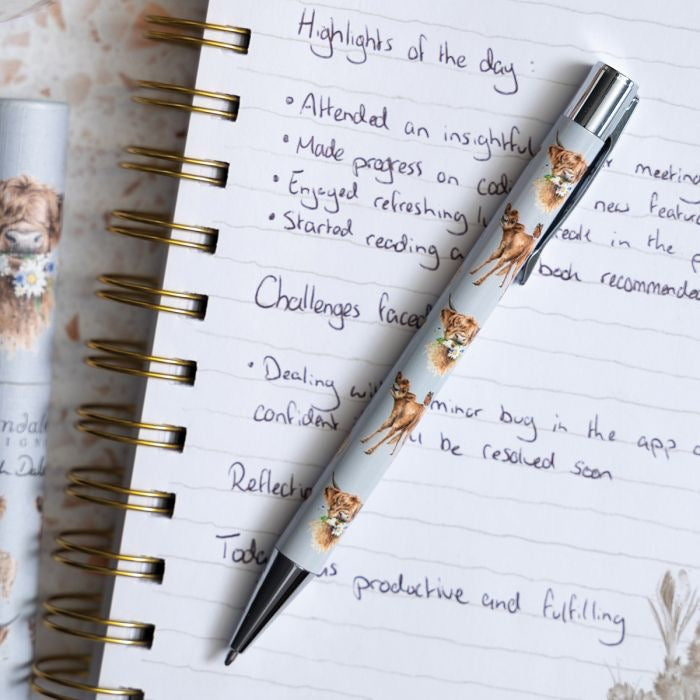 Highlights of the day :
• Attended an insightful meeting
• Made progress on new
• Enjoyed refreshing in the
• Started reading a book recommende
Challenges faced
• Dealing minor bug in the app
confident be resolved soon
Reflectio
Toda is productive and fulfilling